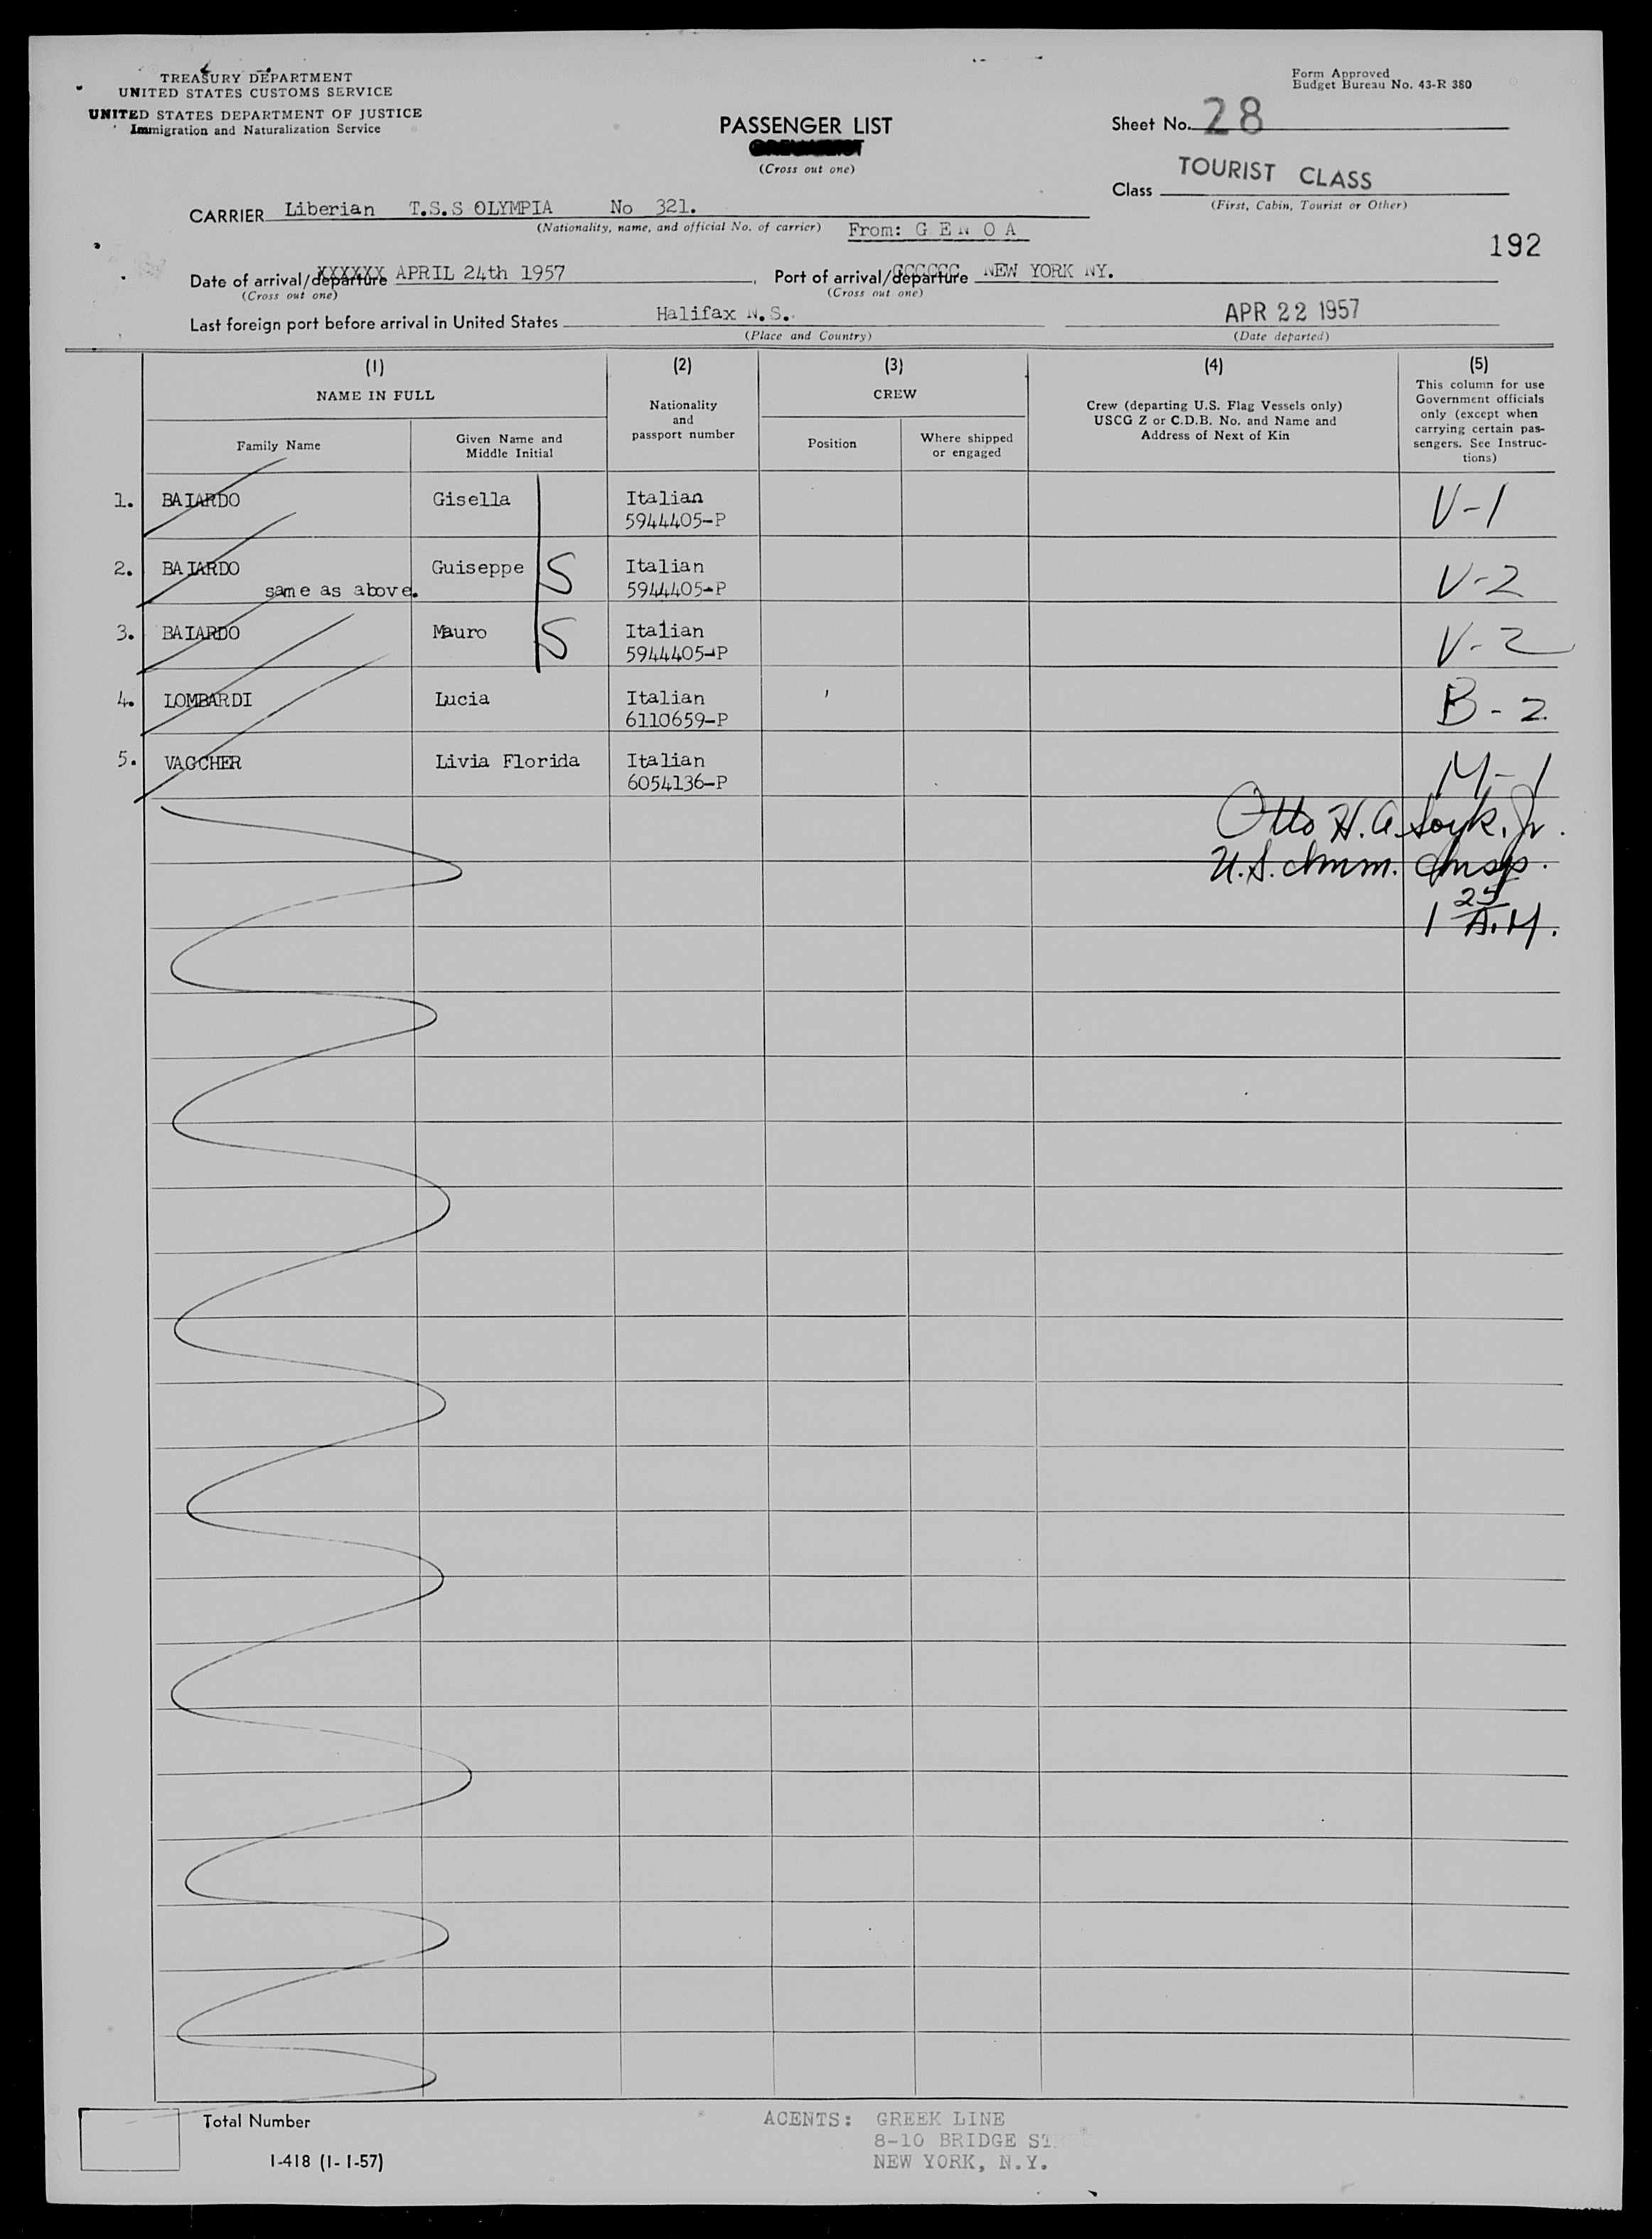 TREASURY DEPARTMENT
UNITED STATES CUSTOMS SERVICE
UNITED STATES DEPARTMENT OF JUSTICE
Immigration and Naturalization Service
Form Approved
Budget Bureau No. 43-R 380
PASSENGER LIST
(Cross out one)
Sheet No. 28
Class TOURIST CLASS
(First, Cabin, Tourist or Other)
CARRIER Liberian T.S.S OLYMPIA No 321.
(Nationality, name, and official No. of carrier)
From: G E N O A
192
Date of arrival/departure XXXXXX APRIL 24th 1957
(Cross out one)
Port of arrival/departure NEW YORK NY.
(Cross out one)
Last foreign port before arrival in United States Halifax N.S.
(Place and Country)
APR 22 1957
(Date departed)
(1)
NAME IN FULL
Family Name
Given Name and
Middle Initial
(2)
Nationality
and
passport number
(3)
CREW
Position
Where shipped
or engaged
(4)
Crew (departing U.S. Flag Vessels only)
USCG Z or C.D.B. No. and Name and
Address of Next of Kin
(5)
This column for use
Government officials
only (except when
carrying certain pas-
sengers. See Instruc-
tions)
1. BAIARDO Gisella Italian V-1
5944405-P
2. BAIARDO Guiseppe S Italian V-2
same as above. 5944405-P
3. BAIARDO Mauro S Italian V-2
5944405-P
4. LOMBARDI Lucia Italian B-2
6110659-P
5. VAGCHER Livia Florida Italian M-1
6054136-P
Otto H. A. Soyk, Jr.
U.S. Imm. Insp.
1 25 A.M.
Total Number
I-418 (1-1-57)
AGENTS: GREEK LINE
8-10 BRIDGE ST
NEW YORK, N.Y.